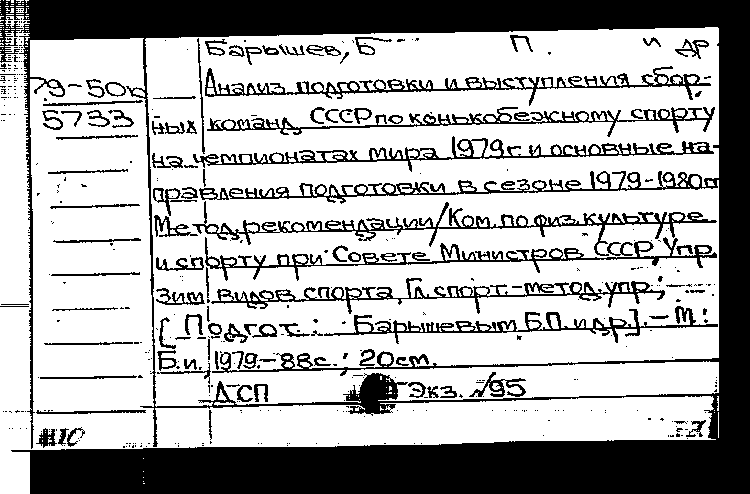 Барышев, Б П. и др.
79-50ю
5733
Анализ подготовки и выступления сбор-
ных команд СССР по конькобежному спорту
на чемпионатах мира 1979 г. и основные на-
правления подготовки в сезоне 1979-1980 гг
Метод. рекомендации/Ком. по физ. культуре
и спорту при Совете Министров СССР, Упр.
зим. видов спорта, Гл. спорт.-метод. упр.;
[Подгот.: Барышевым Б.П. и др.]. - М.:
Б.и., 1979. - 88 с.; 20 см.
ДСП Экз. №95